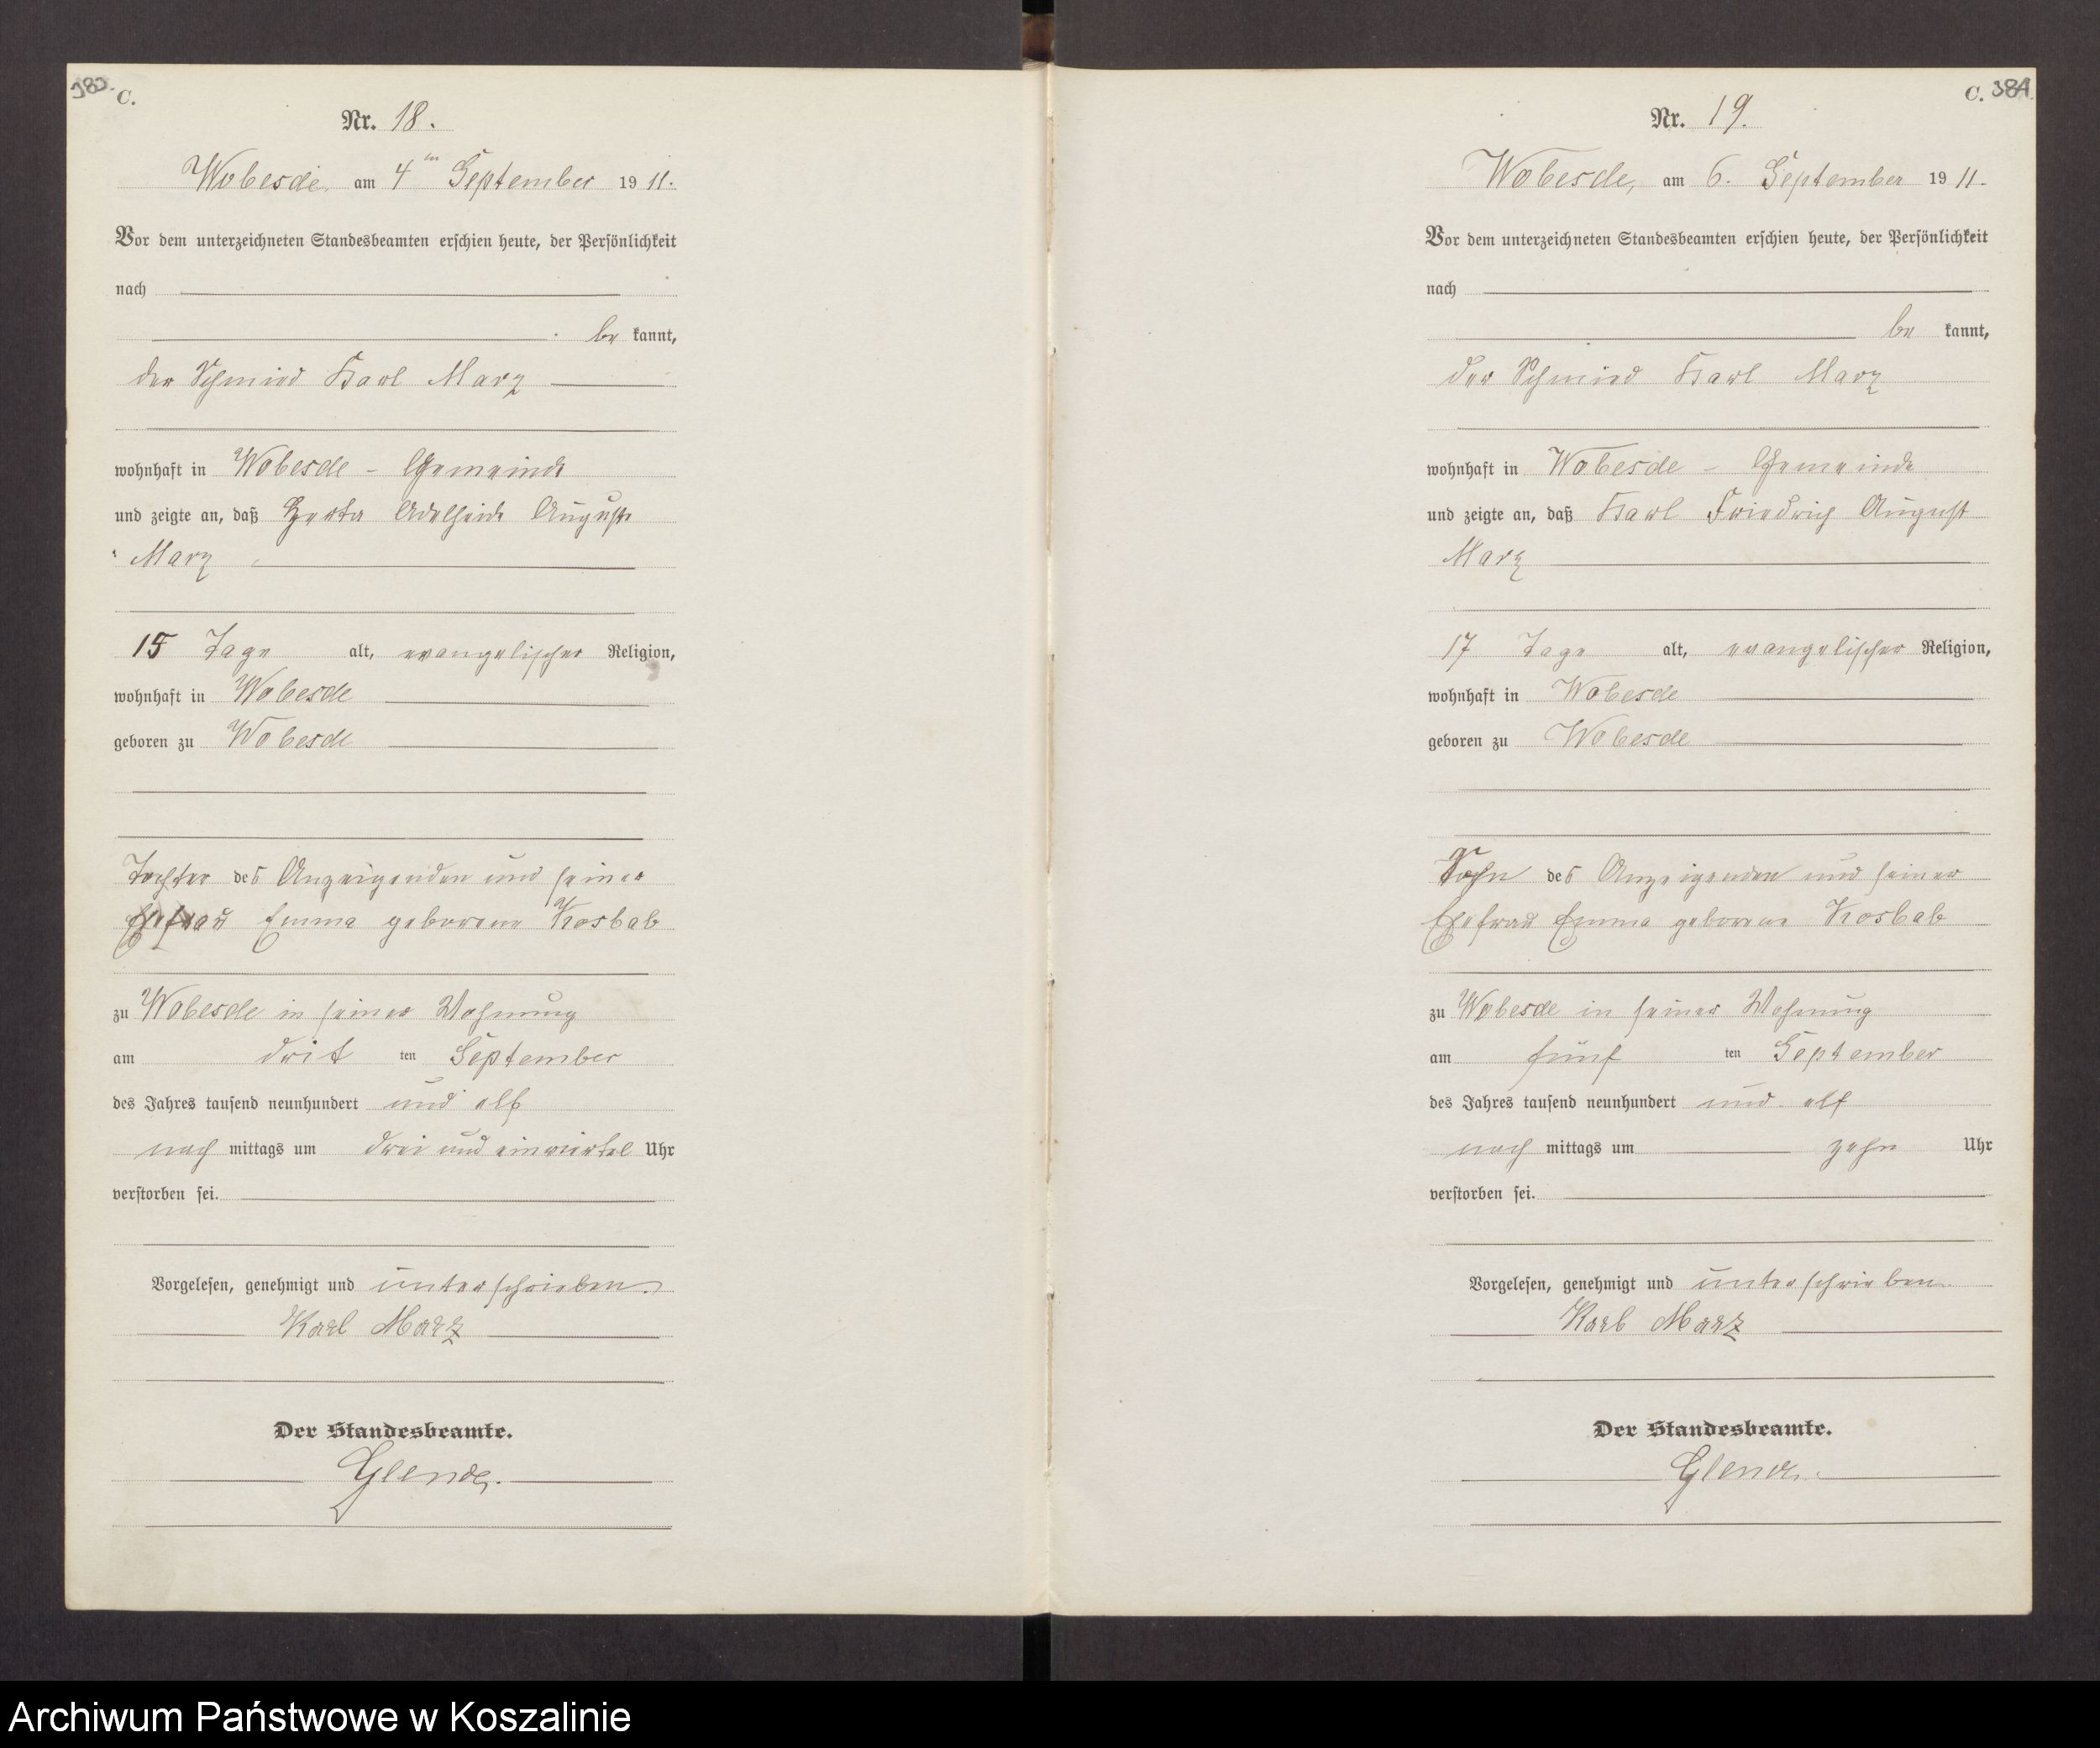 383. C.
Nr. 18.
Wobesde, am 4ten September 1911.
Vor dem unterzeichneten Standesbeamten erschien heute, der Persönlichkeit
nach
be kannt,
der Schmied Karl Marz
wohnhaft in Wobesde - Gemeinde
und zeigte an, daß Herta Adelheide Auguste
Marz
15 Tage alt, evangelischer Religion,
wohnhaft in Wobesde
geboren zu Wobesde
Tochter des Anzeigenden und seiner
Ehefrau Emma geborene Kosbab
zu Wobesde in seiner Wohnung
am drit ten September
des Jahres tausend neunhundert und elf
nach mittags um drei und einviertel Uhr
verstorben sei.
Vorgelesen, genehmigt und unterschrieben.
Karl Marz
Der Standesbeamte.
C. 384.
Nr. 19.
Wobesde, am 6. September 1911.
Vor dem unterzeichneten Standesbeamten erschien heute, der Persönlichkeit
nach
be kannt,
der Schmied Karl Marz
wohnhaft in Wobesde - Gemeinde
und zeigte an, daß Karl Friedrich August
Marz
17 Tage alt, evangelischer Religion,
wohnhaft in Wobesde
geboren zu Wobesde
Sohn des Anzeigenden und seiner
Ehefrau Emma geborene Kosbab
zu Wobesde in seiner Wohnung
am fünf ten September
des Jahres tausend neunhundert und elf
nach mittags um zehn Uhr
verstorben sei.
Vorgelesen, genehmigt und unterschrieben.
Karl Marz
Der Standesbeamte.
Archiwum Państwowe w Koszalinie